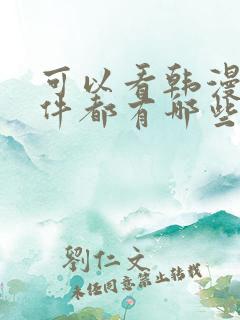 可以看韩漫
件都有哪些
劉仁文
未经同意禁止转载